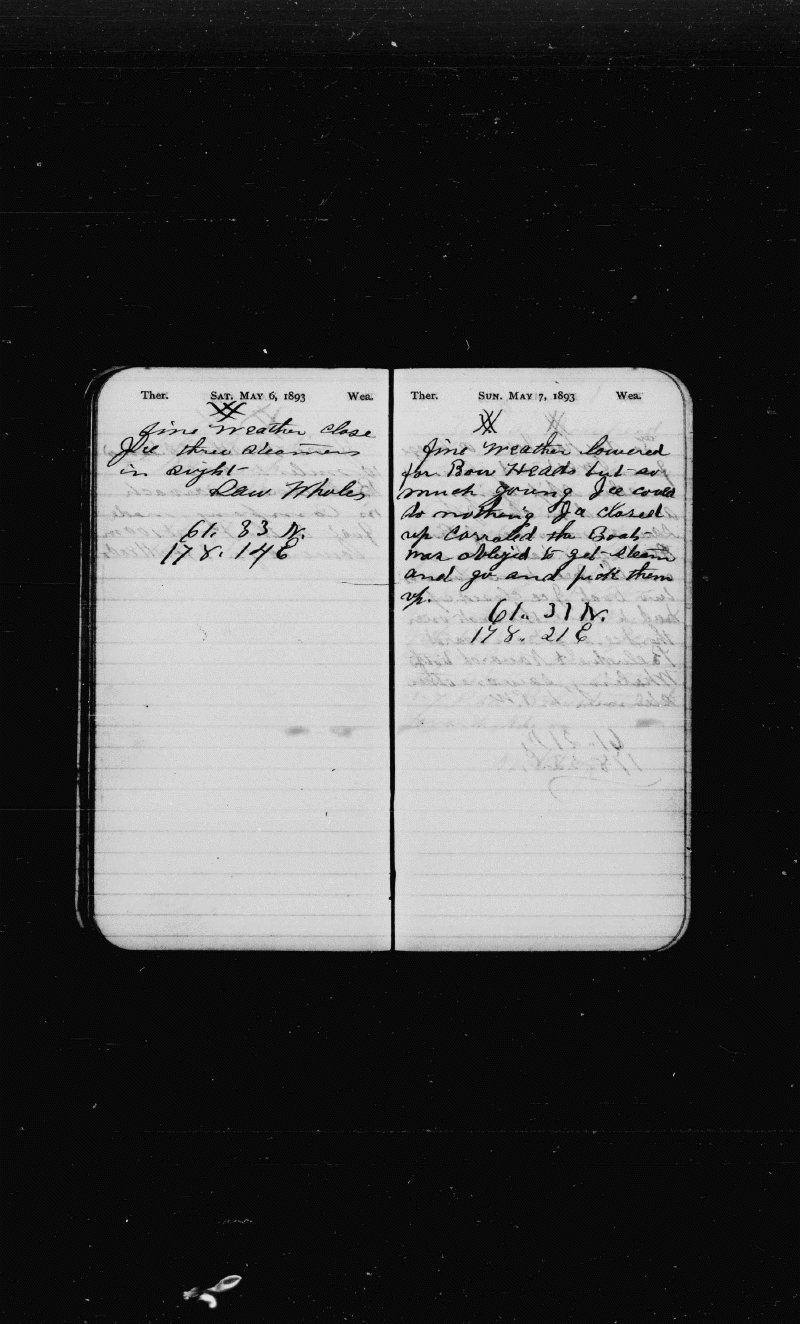 Ther. SAT. MAY 6, 1893 Wea.
fine Weather close
Ice three steamers
in sight
Saw Whales
61. 33 N.
178. 14 E
Ther. SUN. MAY 7, 1893 Wea.
fine Weather lowered
for Bow Heads but so
much young Ice could
do nothing Ice closed
up Corraled the Boats
was obliged to get steam
and go and pick them
up.
61. 31 N.
178. 21 E